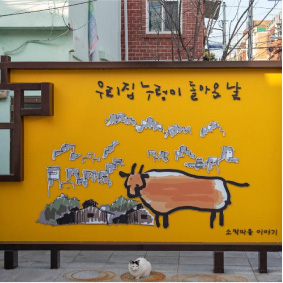 우리집 누렁이 돌아온 날
소막마을 이야기